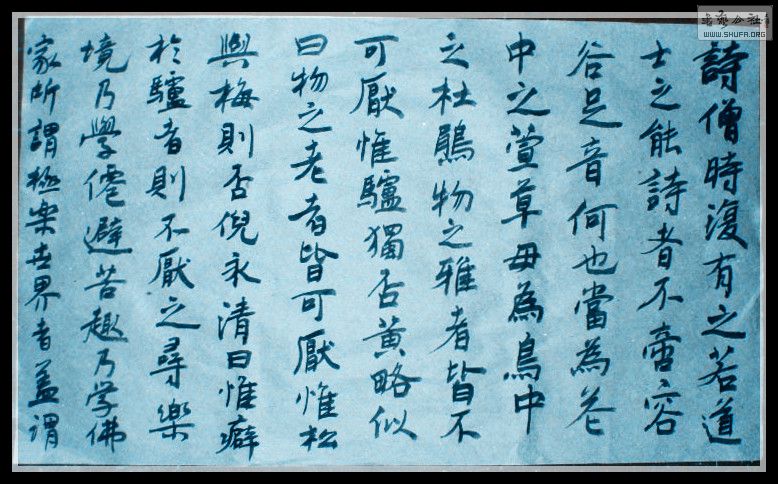 詩僧時復有之若道
士之能詩者不啻容
谷足音何也當為花
中之萱草毋為鳥中
之杜鵑物之雅者皆不
可厭惟驢獨否黄略似
曰物之老者皆可厭惟松
與梅則否倪永清曰惟癖
於驢者則不厭之尋樂
境乃學僊避苦趣乃学佛
家所謂極楽世界者蓋謂
書藝公社
WWW.SHUFA.ORG